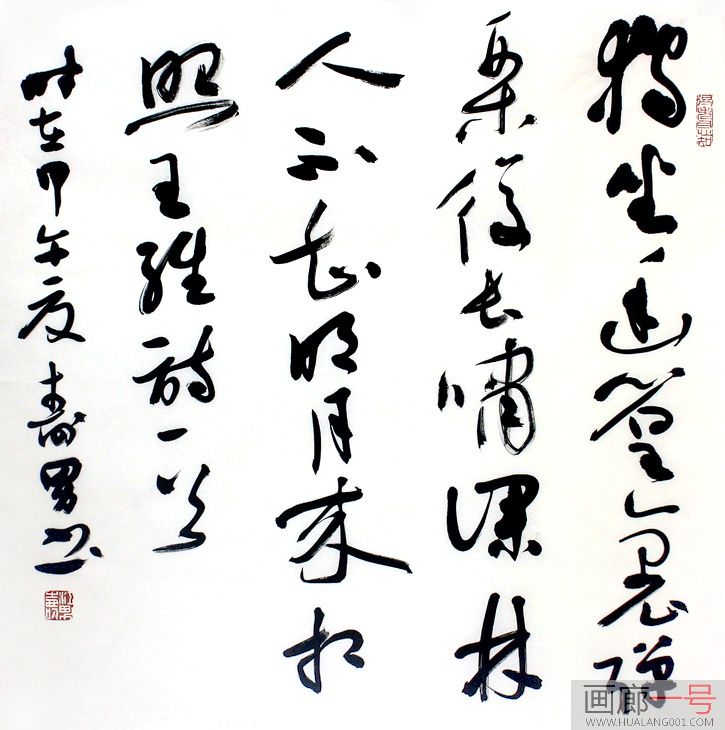 独坐幽篁裏彈
琴復長嘯深林
人不知明月来相
照王維詩一首
时在甲午夏壽男书
画廊一号
WWW.HUALANG001.COM